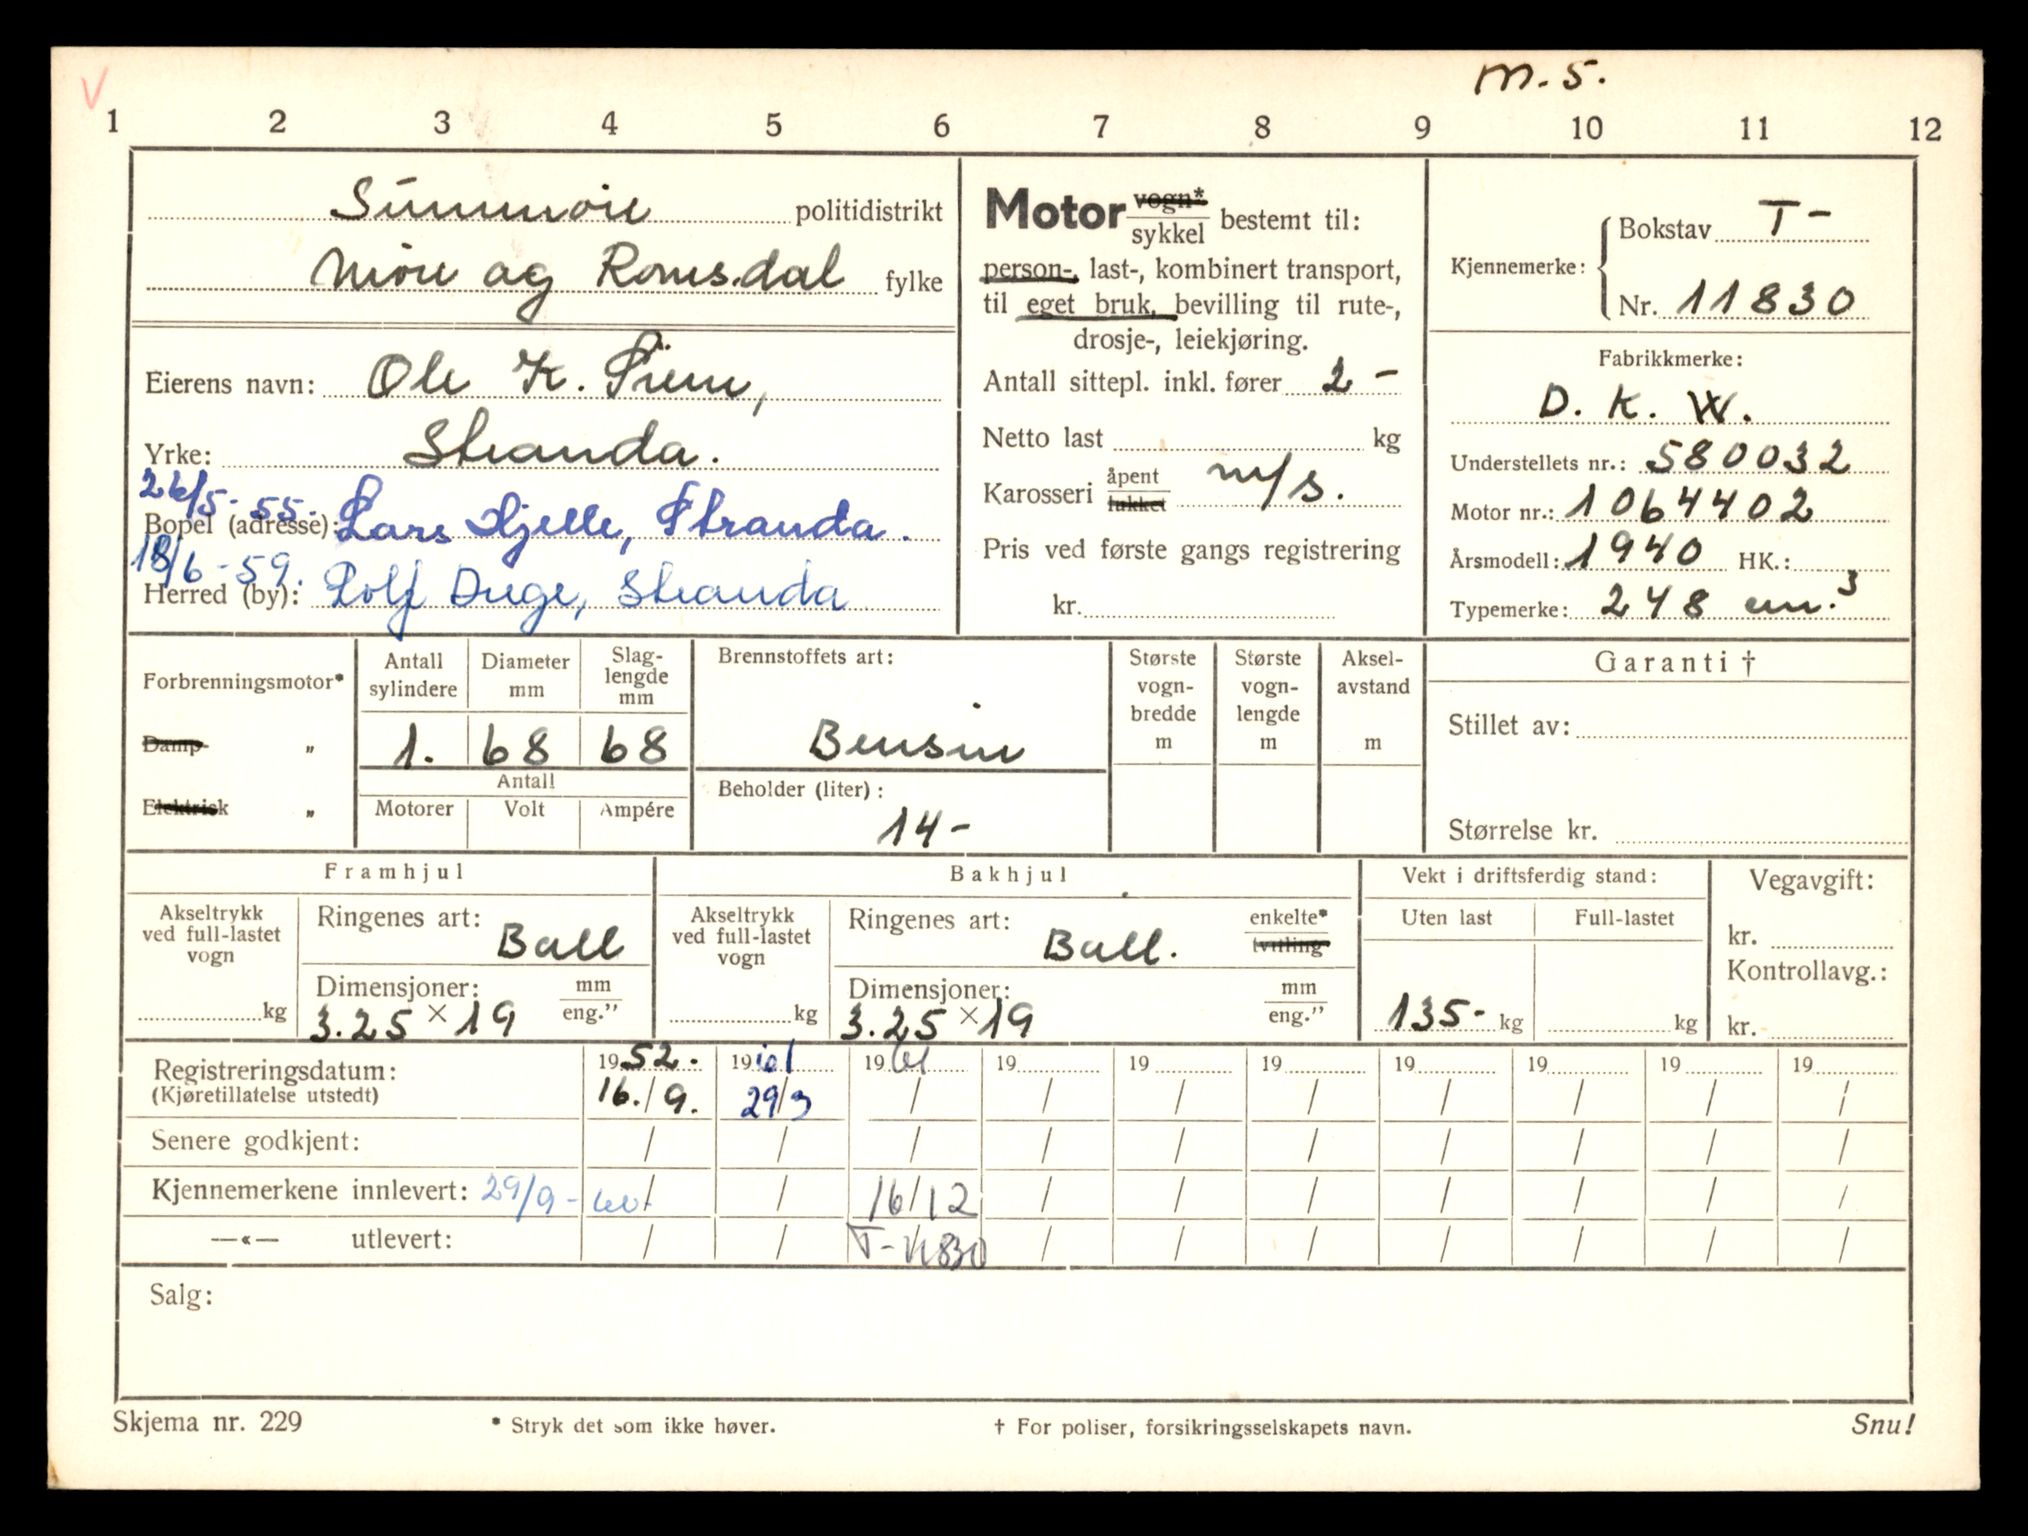 V
m. s.
1 2 3 4 5 6 7 8 9 10 11 12
Sunnmøre politidistrikt
Møre og Romsdal fylke
Eierens navn: Ole K.
Yrke: Stranda.
26/5-55. Bopel (adresse): Lars Hjelle, Stranda.
18/6-59. Herred (by): Rolf Druge, Stranda
Motor vogn*/sykkel bestemt til:
person-, last-, kombinert transport,
til eget bruk, bevilling til rute-,
drosje-, leiekjøring.
Antall sittepl. inkl. fører 2 -
Netto last kg
Karosseri åpent/lukket m/s.
Pris ved første gangs registrering
kr.
Kjennemerke: Bokstav T-
Nr. 11830
Fabrikkmerke:
D. K. W.
Understellets nr.: 580032
Motor nr.: 1064402
Årsmodell: 1940 HK.:
Typemerke: 248 cm.³
Forbrenningsmotor*
Damp- "
Elektrisk "
Antall sylindere Diameter mm Slag-lengde mm
1. 68 68
Antall
Motorer Volt Ampére
Brennstoffets art:
Bensin
Beholder (liter):
14-
Største vogn-bredde m
Største vogn-lengde m
Aksel-avstand m
Garanti †
Stillet av:
Størrelse kr.
Framhjul
Akseltrykk ved full-lastet vogn
kg
Ringenes art: Ball
Dimensjoner: mm/eng."
3.25 × 19
Bakhjul
Akseltrykk ved full-lastet vogn
kg
Ringenes art: Ball. enkelte*/tvilling
Dimensjoner: mm/eng."
3.25 × 19
Vekt i driftsferdig stand:
Uten last Full-lastet
135- kg kg
Vegavgift:
kr.
Kontrollavg.:
kr.
Registreringsdatum: 1952. 1961 1961 19 19 19 19 19 19 19
(Kjøretillatelse utstedt) 16./9. 29/3 / / / / / / / /
Senere godkjent: / / / / / / / / / /
Kjennemerkene innlevert: 29/9-60. / / 16/12 / / / / / / /
—«— utlevert: / / T-11830 / / / / / / /
Salg:
Skjema nr. 229
* Stryk det som ikke høver.
† For poliser, forsikringsselskapets navn.
Snu!